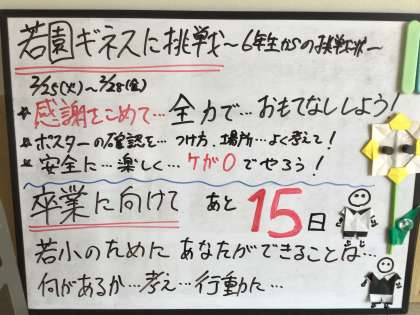 若園ギネスに挑戦～6年生からの挑戦状～
2/25(火)～2/28(金)
★感謝をこめて…全力で…おもてなししよう！
★ポスターの確認を…つけ方、場所…よく考えて！
★安全に…楽しく…ケガ0でやろう！
卒業に向けて あと15日
若小のために あなたができることは…
何があるか…考え…行動に…